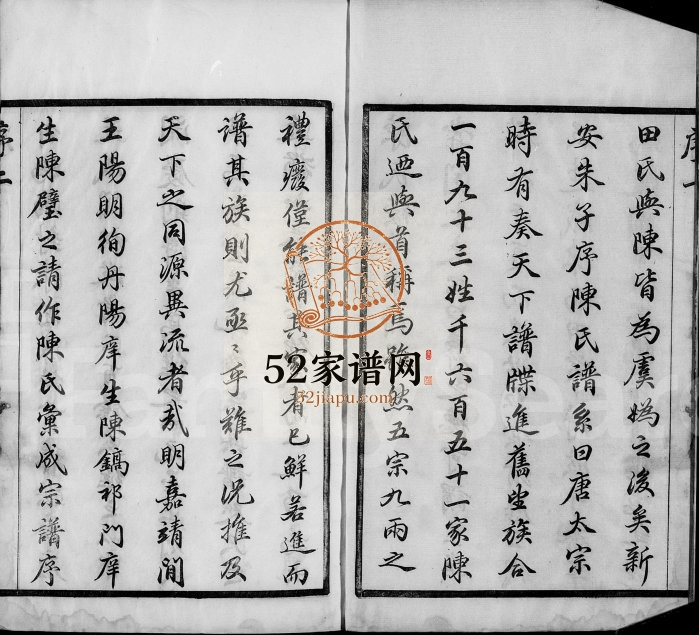 序一
田氏與陳皆為虞媯之後矣新
安朱子序陳氏譜系曰唐太宗
時有奏天下譜牒進舊望族合
一百九十三姓千六百五十一家陳
氏迺與首稱焉雖然五宗九兩之
禮廢僅能譜其家者已鮮若進而
譜其族則尤亟〻乎難之況推及
天下之同源異流者哉明嘉靖間
王陽明徇丹陽庠生陳鎬祁門庠
生陳璧之請作陳氏彙成宗譜序
序二
52家谱网
52jiapu.com